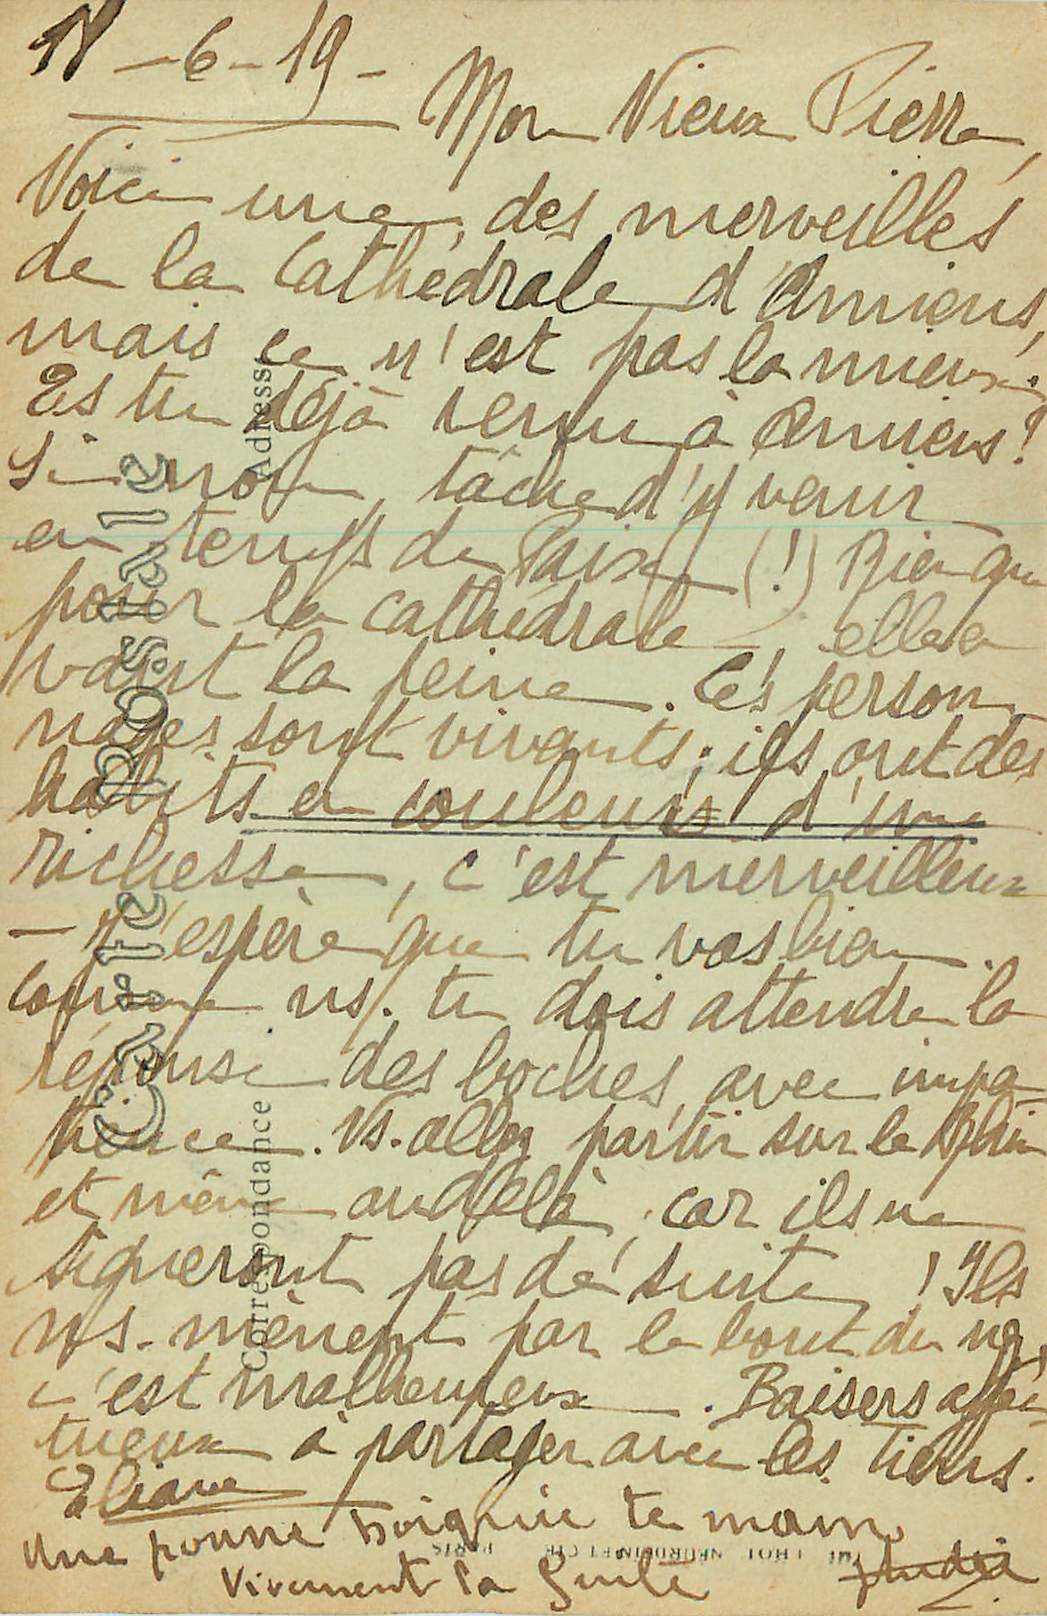 18-6-19- Mon Vieux Pierre,
Voici une des merveilles
de la Cathédrale d'Amiens,
mais ce n'est pas la mieux.
Es tu déjà venu à Amiens?
Si non, tâche d'y venir
en temps de Paix (!) Rien que
pour la cathédrale, elle en
vaut la peine. Ces person
nages sont vivants; ils ont des
habits en couleurs d'une
richesse, c'est merveilleux
- J'espère que tu vas bien.
Comme ns. tu dois attendre la
réponse des boches, avec impa-
tience. Vs. allez partir sur le Rhin
et même au delà, car ils ne
signeront pas de suite! Ils
ns. mènent par le bout du nez,
c'est malheureux. Baisers affec-
tueux à partager avec les tiens.
Eliane
Une ponne boignée te main
Vivement la
Carte Postale
Correspondance
Adresse
PHOT NEURDEIN ET CIE PARIS